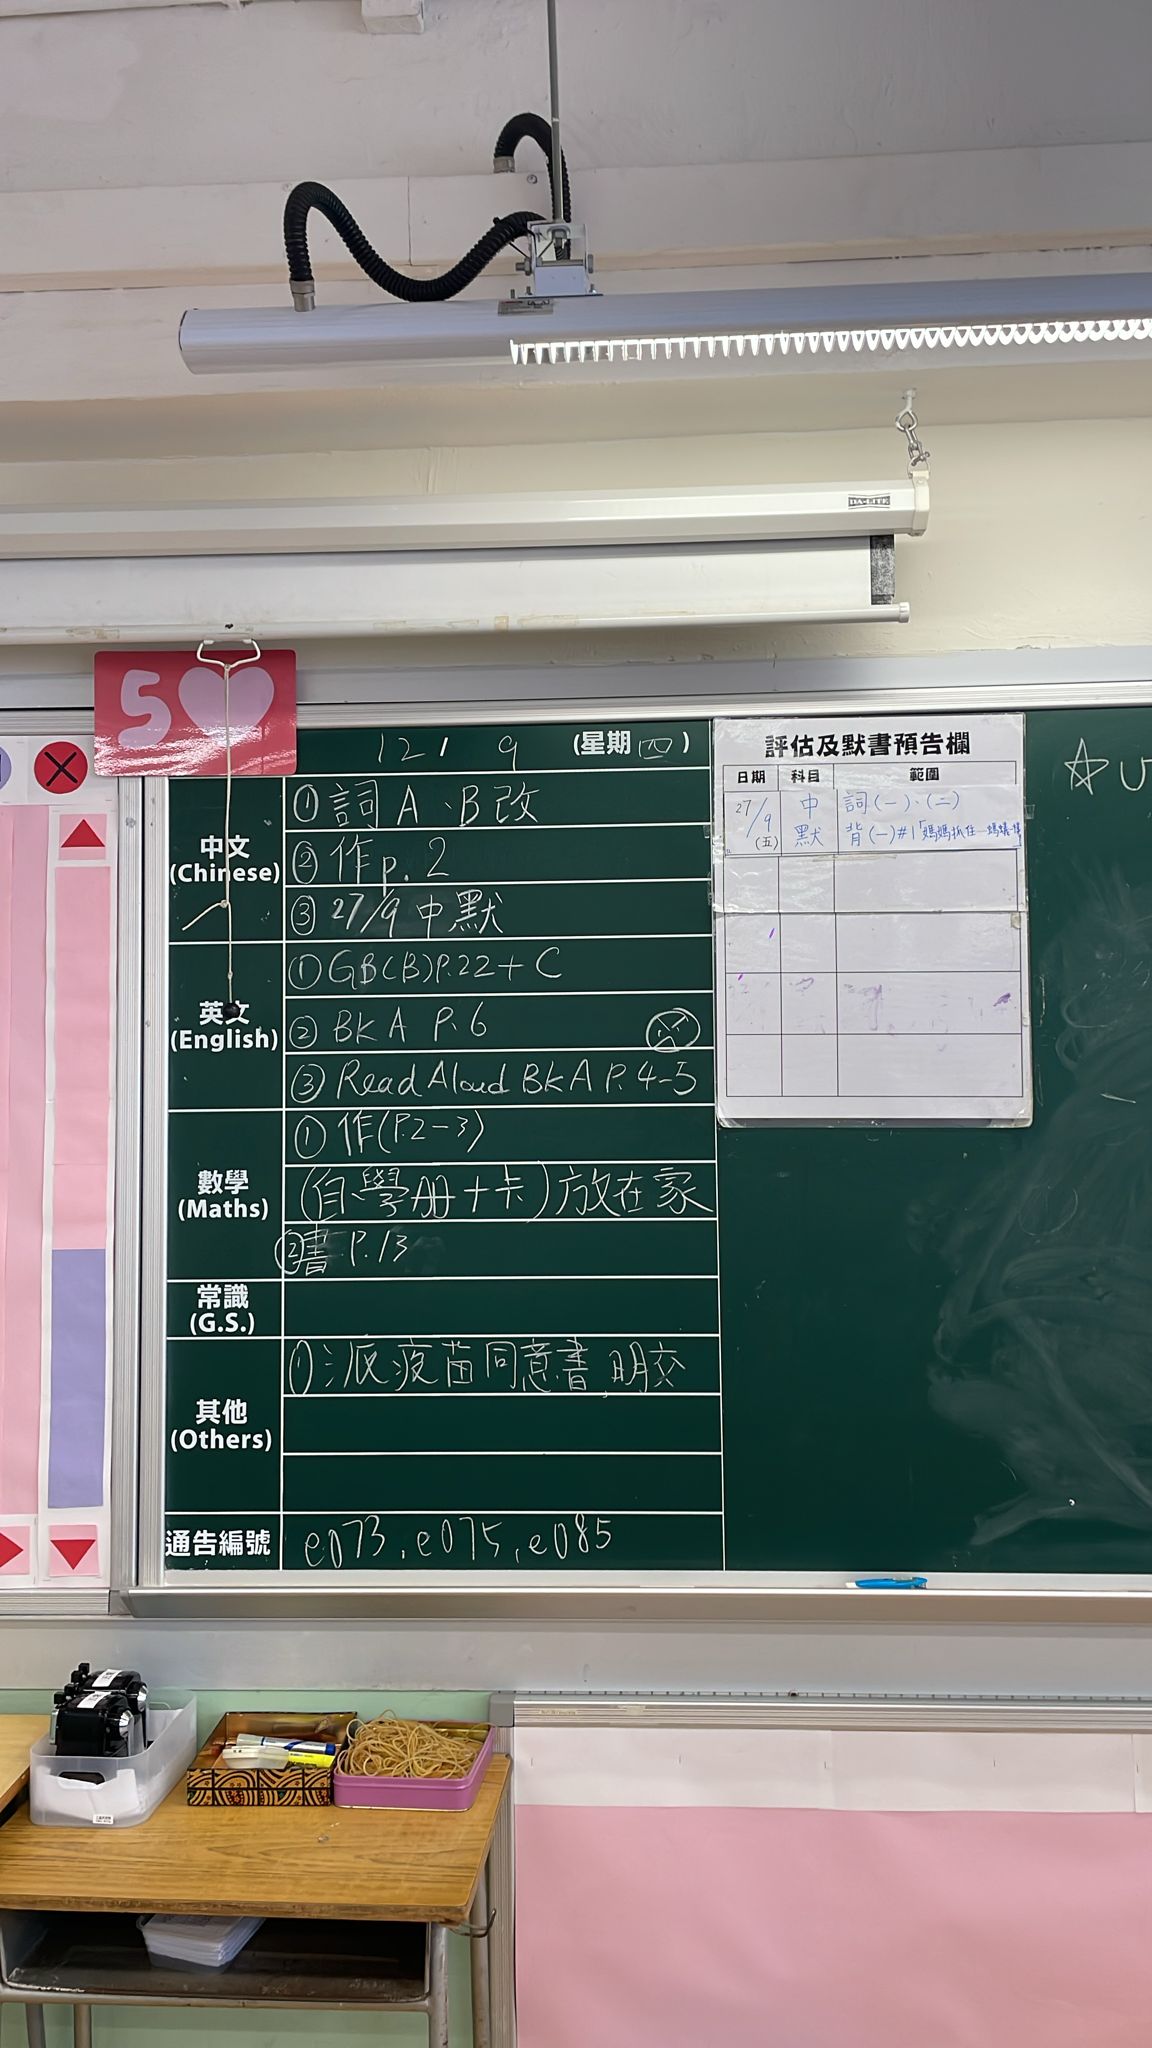 DA-LITE
5
12 / 9 (星期 四)
中文
(Chinese)
① 詞 A、B 改
② 作 p. 2
③ 27/9 中默
英文
(English)
① GB(B) P.22 + C
② BK A P. 6
③ Read Aloud BK A P. 4-5
數學
(Maths)
① 作(P.2-3)
(自學册+卡)放在家
② 書 P.13
常識
(G.S.)
其他
(Others)
① 派疫苗同意書,明交
通告編號
e073, e075, e085
評估及默書預告欄
日期 科目 範圍
27/9 (五) 中默 詞(一)、(二)
背(一)#1「媽媽抓住